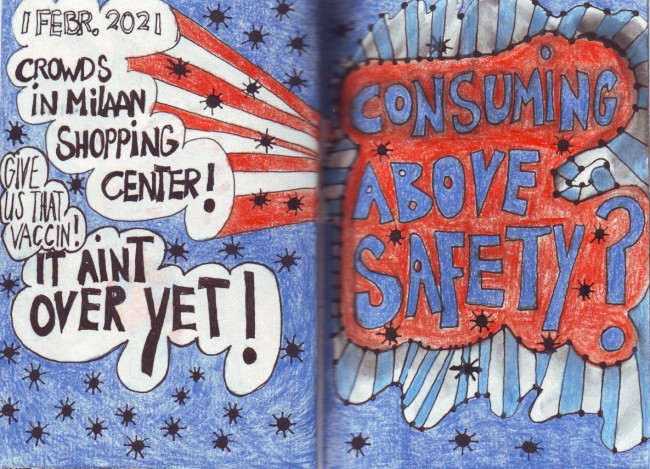 1 FEBR. 2021
CROWDS
IN MILAAN
SHOPPING
CENTER!
GIVE
US THAT
VACCIN!
IT AINT
OVER YET!
CONSUMING
ABOVE
SAFETY?